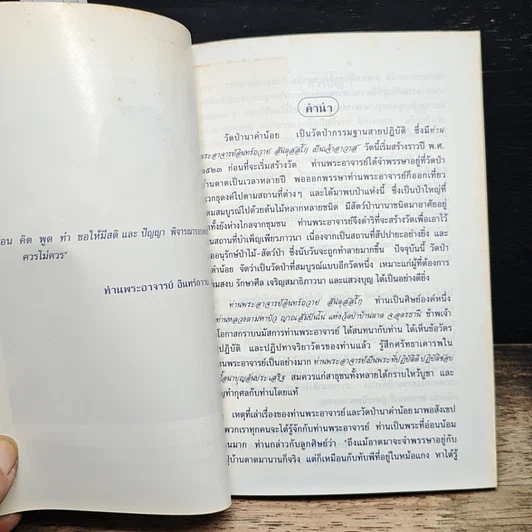 อน คิด พูด ทำ ขอให้มีสติ และ ปัญญา พิจารณารอบคอบ
ควรไม่ควร"
ท่านพระอาจารย์ อินทร์ถวาย
คำนำ
วัดป่านาคำน้อย เป็นวัดป่ากรรมฐานสายปฏิบัติ ซึ่งมีท่าน
พระอาจารย์อินทร์ถวาย สันตุสสโก เป็นเจ้าอาวาส วัดนี้เริ่มสร้างราวปี พ.ศ.
๒๕๒๓ ก่อนที่จะเริ่มสร้างวัด ท่านพระอาจารย์ได้จำพรรษาอยู่ที่วัดป่า
บ้านตาดเป็นเวลาหลายปี พอออกพรรษาท่านพระอาจารย์ก็ออกเที่ยว
เวกธุดงค์ไปตามสถานที่ต่างๆ และได้มาพบป่าแห่งนี้ ซึ่งเป็นป่าใหญ่ที่
ดมสมบูรณ์ไปด้วยต้นไม้หลากหลายชนิด มีสัตว์ป่านานาชนิดมาอาศัยอยู่
ทั้งยังห่างไกลจากชุมชน ท่านพระอาจารย์จึงดำริที่จะสร้างวัดเพื่อเอาไว้
เป็นสถานที่บำเพ็ญเพียรภาวนา เนื่องจากเป็นสถานที่สัปปายะอย่างยิ่ง และ
ออนุรักษ์ป่าไม้-สัตว์ป่า ซึ่งนับวันจะถูกทำลายมากขึ้น ปัจจุบันนี้ วัดป่า
คำน้อย จัดว่าเป็นวัดป่าที่สมบูรณ์แบบอีกวัดหนึ่ง เหมาะแก่ผู้ที่ต้องการ
ามสงบ รักษาศีล เจริญสมาธิภาวนา และแสวงบุญ ได้เป็นอย่างดียิ่ง
ท่านพระอาจารย์อินทร์ถวาย สันตุสสโก ท่านเป็นศิษย์องค์หนึ่ง
ท่านหลวงตามหาบัว ญาณสัมปันโน แห่งวัดป่าบ้านตาด จ.อุดรธานี ข้าพเจ้า
โอกาสกราบนมัสการท่านพระอาจารย์ ได้สนทนากับท่าน ได้เห็นข้อวัตร
ปฏิบัติ และปฏิปทาจริยาวัตรของท่านแล้ว รู้สึกศรัทธาเคารพใน
นพระอาจารย์เป็นอย่างมาก ท่านพระอาจารย์เป็นพระที่ปฏิบัติดี ปฏิบัติชอบ
นื้อนาบุญอันประเสริฐ สมควรแก่สาธุชนทั้งหลายได้กราบไหว้บูชา และ
ญทำกุศลกับท่านโดยแท้
เหตุที่เล่าเรื่องของท่านพระอาจารย์และวัดป่านาคำน้อย มาพอสังเขป
พวกเราทุกคนจะได้รู้จักกับท่านพระอาจารย์ ท่านเป็นพระที่อ่อนน้อม
นมาก ท่านกล่าวกับลูกศิษย์ว่า "ถึงแม้อาตมาจะจำพรรษาอยู่กับ
บ้านตาดมานานก็จริง แต่ก็เหมือนกับทัพพีที่อยู่ในหม้อแกง หาได้รู้